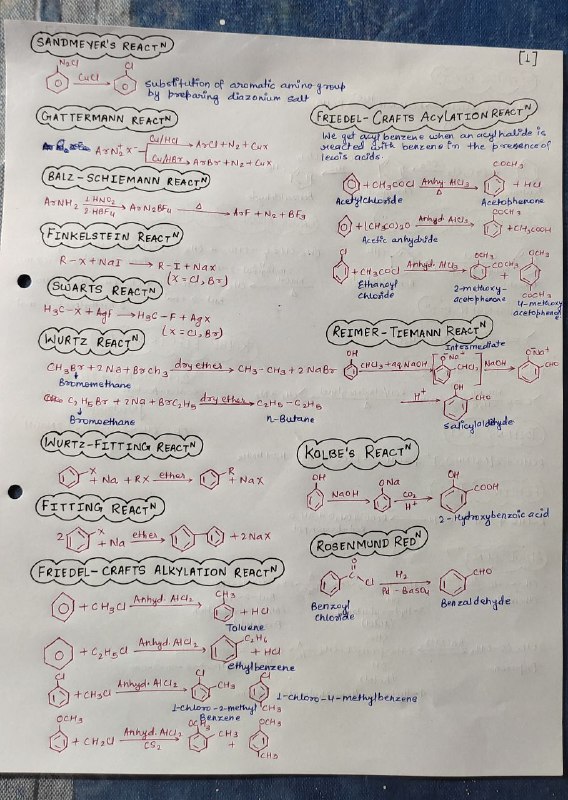 [1]
SANDMEYER'S REACTᴺ
N₂Cl
Cl
CuCl
substitution of aromatic amino group
by preparing diazonium salt
GATTERMANN REACTᴺ
ArN₂⁺X⁻
Cu/HCl → ArCl + N₂ + CuX
Cu/HBr → ArBr + N₂ + CuX
BALZ-SCHIEMANN REACTᴺ
ArNH₂ 1.HNO₂ 2.HBF₄ → ArN₂BF₄ Δ → ArF + N₂ + BF₃
FINKELSTEIN REACTᴺ
R-X + NaI → R-I + NaX
(X = Cl, Br)
SWARTS REACTᴺ
H₃C-X + AgF → H₃C-F + AgX
(X = Cl, Br)
WURTZ REACTᴺ
CH₃Br + 2Na + BrCH₃ dry ether → CH₃-CH₃ + 2NaBr
Bromomethane
C₂H₅Br + 2Na + BrC₂H₅ dry ether → C₂H₅-C₂H₅
Bromoethane n-Butane
WURTZ-FITTING REACTᴺ
X
+ Na + RX ether → R + NaX
FITTING REACTᴺ
2 X + Na ether → + 2NaX
FRIEDEL-CRAFTS ALKYLATION REACTᴺ
+ CH₃Cl Anhyd. AlCl₃ → CH₃ + HCl
Toluene
+ C₂H₅Cl Anhyd. AlCl₃ → C₂H₆ + HCl
ethylbenzene
Cl + CH₃Cl Anhyd. AlCl₃ → Cl CH₃ Cl CH₃
1-chloro-2-methyl Benzene
1-chloro-4-methylbenzene
OCH₃ + CH₃Cl Anhyd. AlCl₃ CS₂ → OCH₃ CH₃ + OCH₃ CH₃
FRIEDEL-CRAFTS ACYLATION REACTᴺ
We get acyl benzene when an acyl halide is
reacted with benzene in the presence of
lewis acids.
+ CH₃COCl Anhy. AlCl₃ Δ → COCH₃ + HCl
Acetylchloride Acetophenone
+ (CH₃CO)₂O Anhyd AlCl₃ → COCH₃ + CH₃COOH
Acetic anhydride
Cl + CH₃COCl Anhyd. AlCl₃ → OCH₃ COCH₃ + OCH₃ COCH₃
Ethanoyl chloride
2-methoxy-acetophenone
4-methoxy acetophenone
REIMER-TIEMANN REACTᴺ
Intermediate
OH CHCl₃ + aq.NaOH → [O⁻Na⁺ CHCl₂] NaOH → O⁻Na⁺ CHO
H⁺ → OH CHO
Salicylaldehyde
KOLBE'S REACTᴺ
OH NaOH → ONa CO₂ H⁺ → OH COOH
2-Hydroxybenzoic acid
ROSENMUND REDᴺ
O C Cl H₂ Pd-BaSO₄ → CHO
Benzoyl chloride
Benzaldehyde